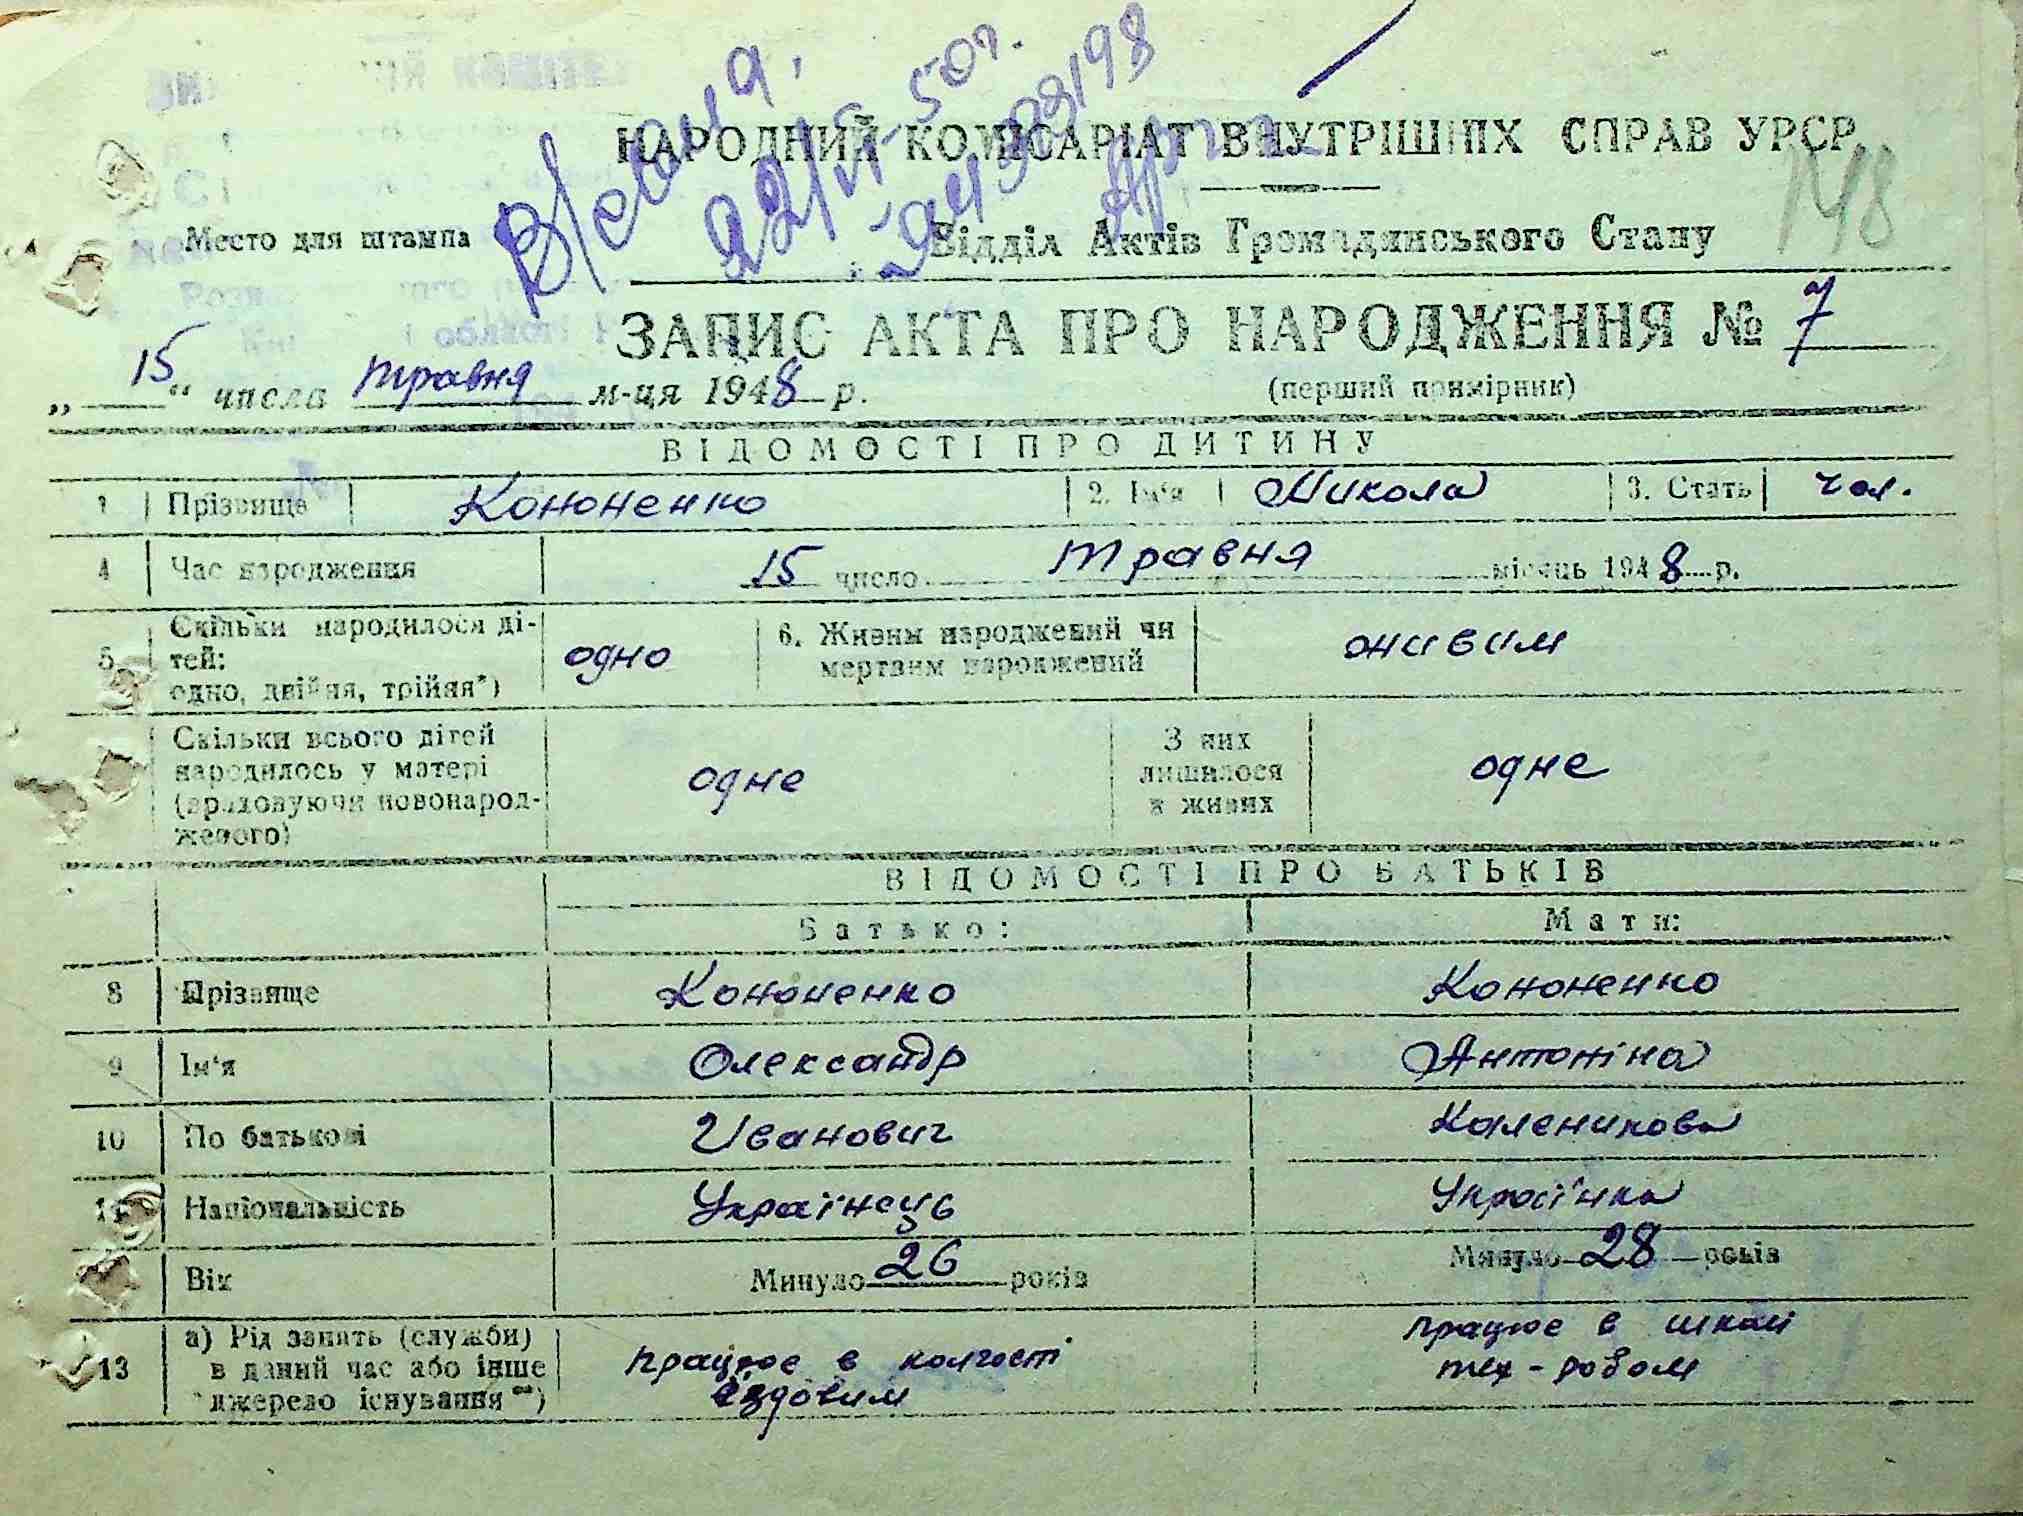 НАРОДНИЙ КОМІСАРІАТ ВНУТРІШНІХ СПРАВ УРСР
148
Место для штампа
Відділ Актів Громадянського Стану
ЗАПИС АКТА ПРО НАРОДЖЕННЯ № 7
„ 15 “ числа травня м-ця 1948 р.
(перший примірник)
ВІДОМОСТІ ПРО ДИТИНУ
1 Прізвище Кононенко 2. Ім'я Микола 3. Стать чол.
4 Час народження 15 число травня місяць 1948 р.
5 Скільки народилося ді-
тей:
одно, двійня, трійня*)
одно
6. Живим народжений чи
мертвим народжений
живим
Скільки всього дітей
народилось у матері
(враховуючи новонарод-
женого)
одне
З них
лишилося
в живих
одне
ВІДОМОСТІ ПРО БАТЬКІВ
Батько: Мати:
8 Прізвище Кононенко Кононенко
9 Ім'я Олександр Антоніна
10 По батькові Иванович Каленикова
11 Національність Українець Українка
Вік Минуло 26 років Минуло 28 років
13 а) Рід занять (служби)
в даний час або інше
джерело існування **)
працює в колгоспі
їздовим
працює в школі
тех-робом